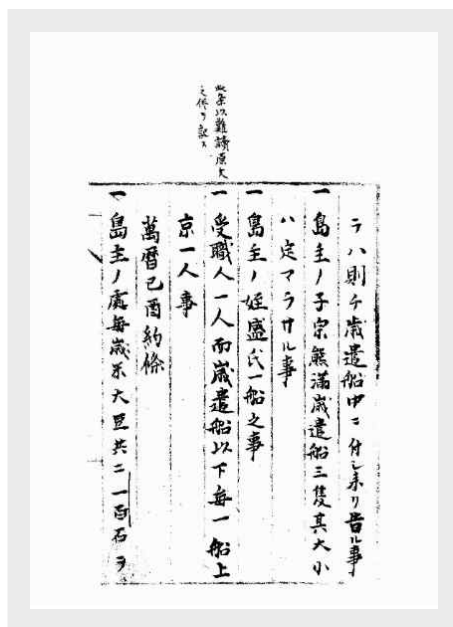 此条以難讀原文
之侭ヲ記ス
ラハ則チ歳遣船中ニ付シ来リ告ル事
一島主ノ子宗熊満歳遣船三隻其大小
ハ定マラサル事
一島主ノ姪盛氏一船之事
一受職人一人而歳遣船以下毎一船上
京一人事
萬暦己酉約條
一島主ノ處毎歳米大豆共ニ一百石ヲ